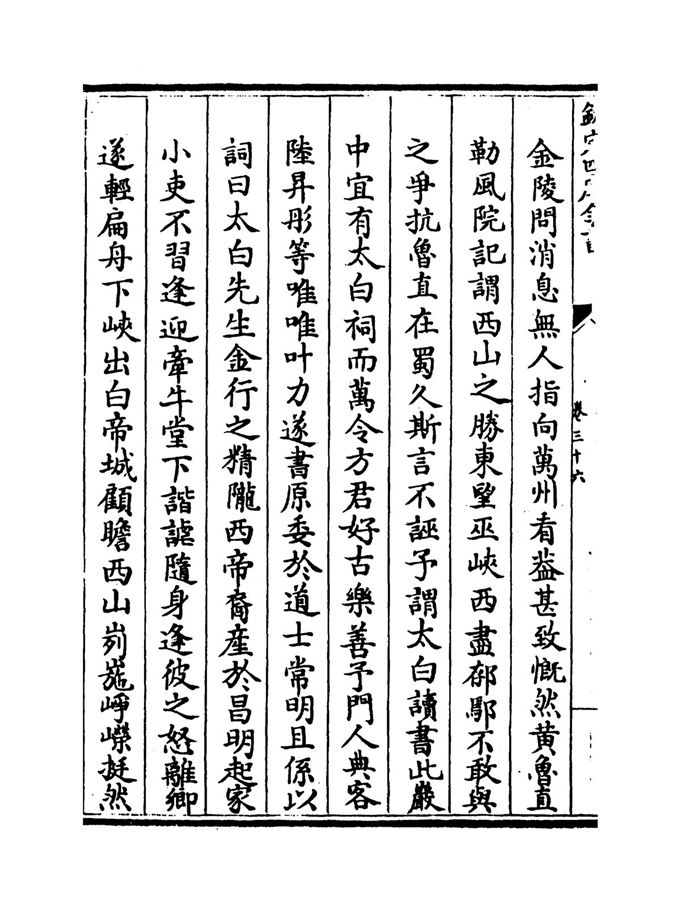 欽定四庫全書
卷三十六
金陵問消息無人指向萬州看葢甚致慨然黄魯直
勒風院記謂西山之勝東望巫峽西盡郁鄢不敢與
之爭抗魯直在蜀久斯言不誣予謂太白讀書此巖
中宜有太白祠而萬令方君好古樂善予門人典客
陸昇彤等唯唯叶力遂書原委於道士常明且係以
詞曰太白先生金行之精隴西帝裔產於昌明起家
小吏不習逢迎牽牛堂下諧謔隨身逢彼之怒離鄉
遂輕扁舟下峽出白帝城顧瞻西山峛崺崢嶸挺然